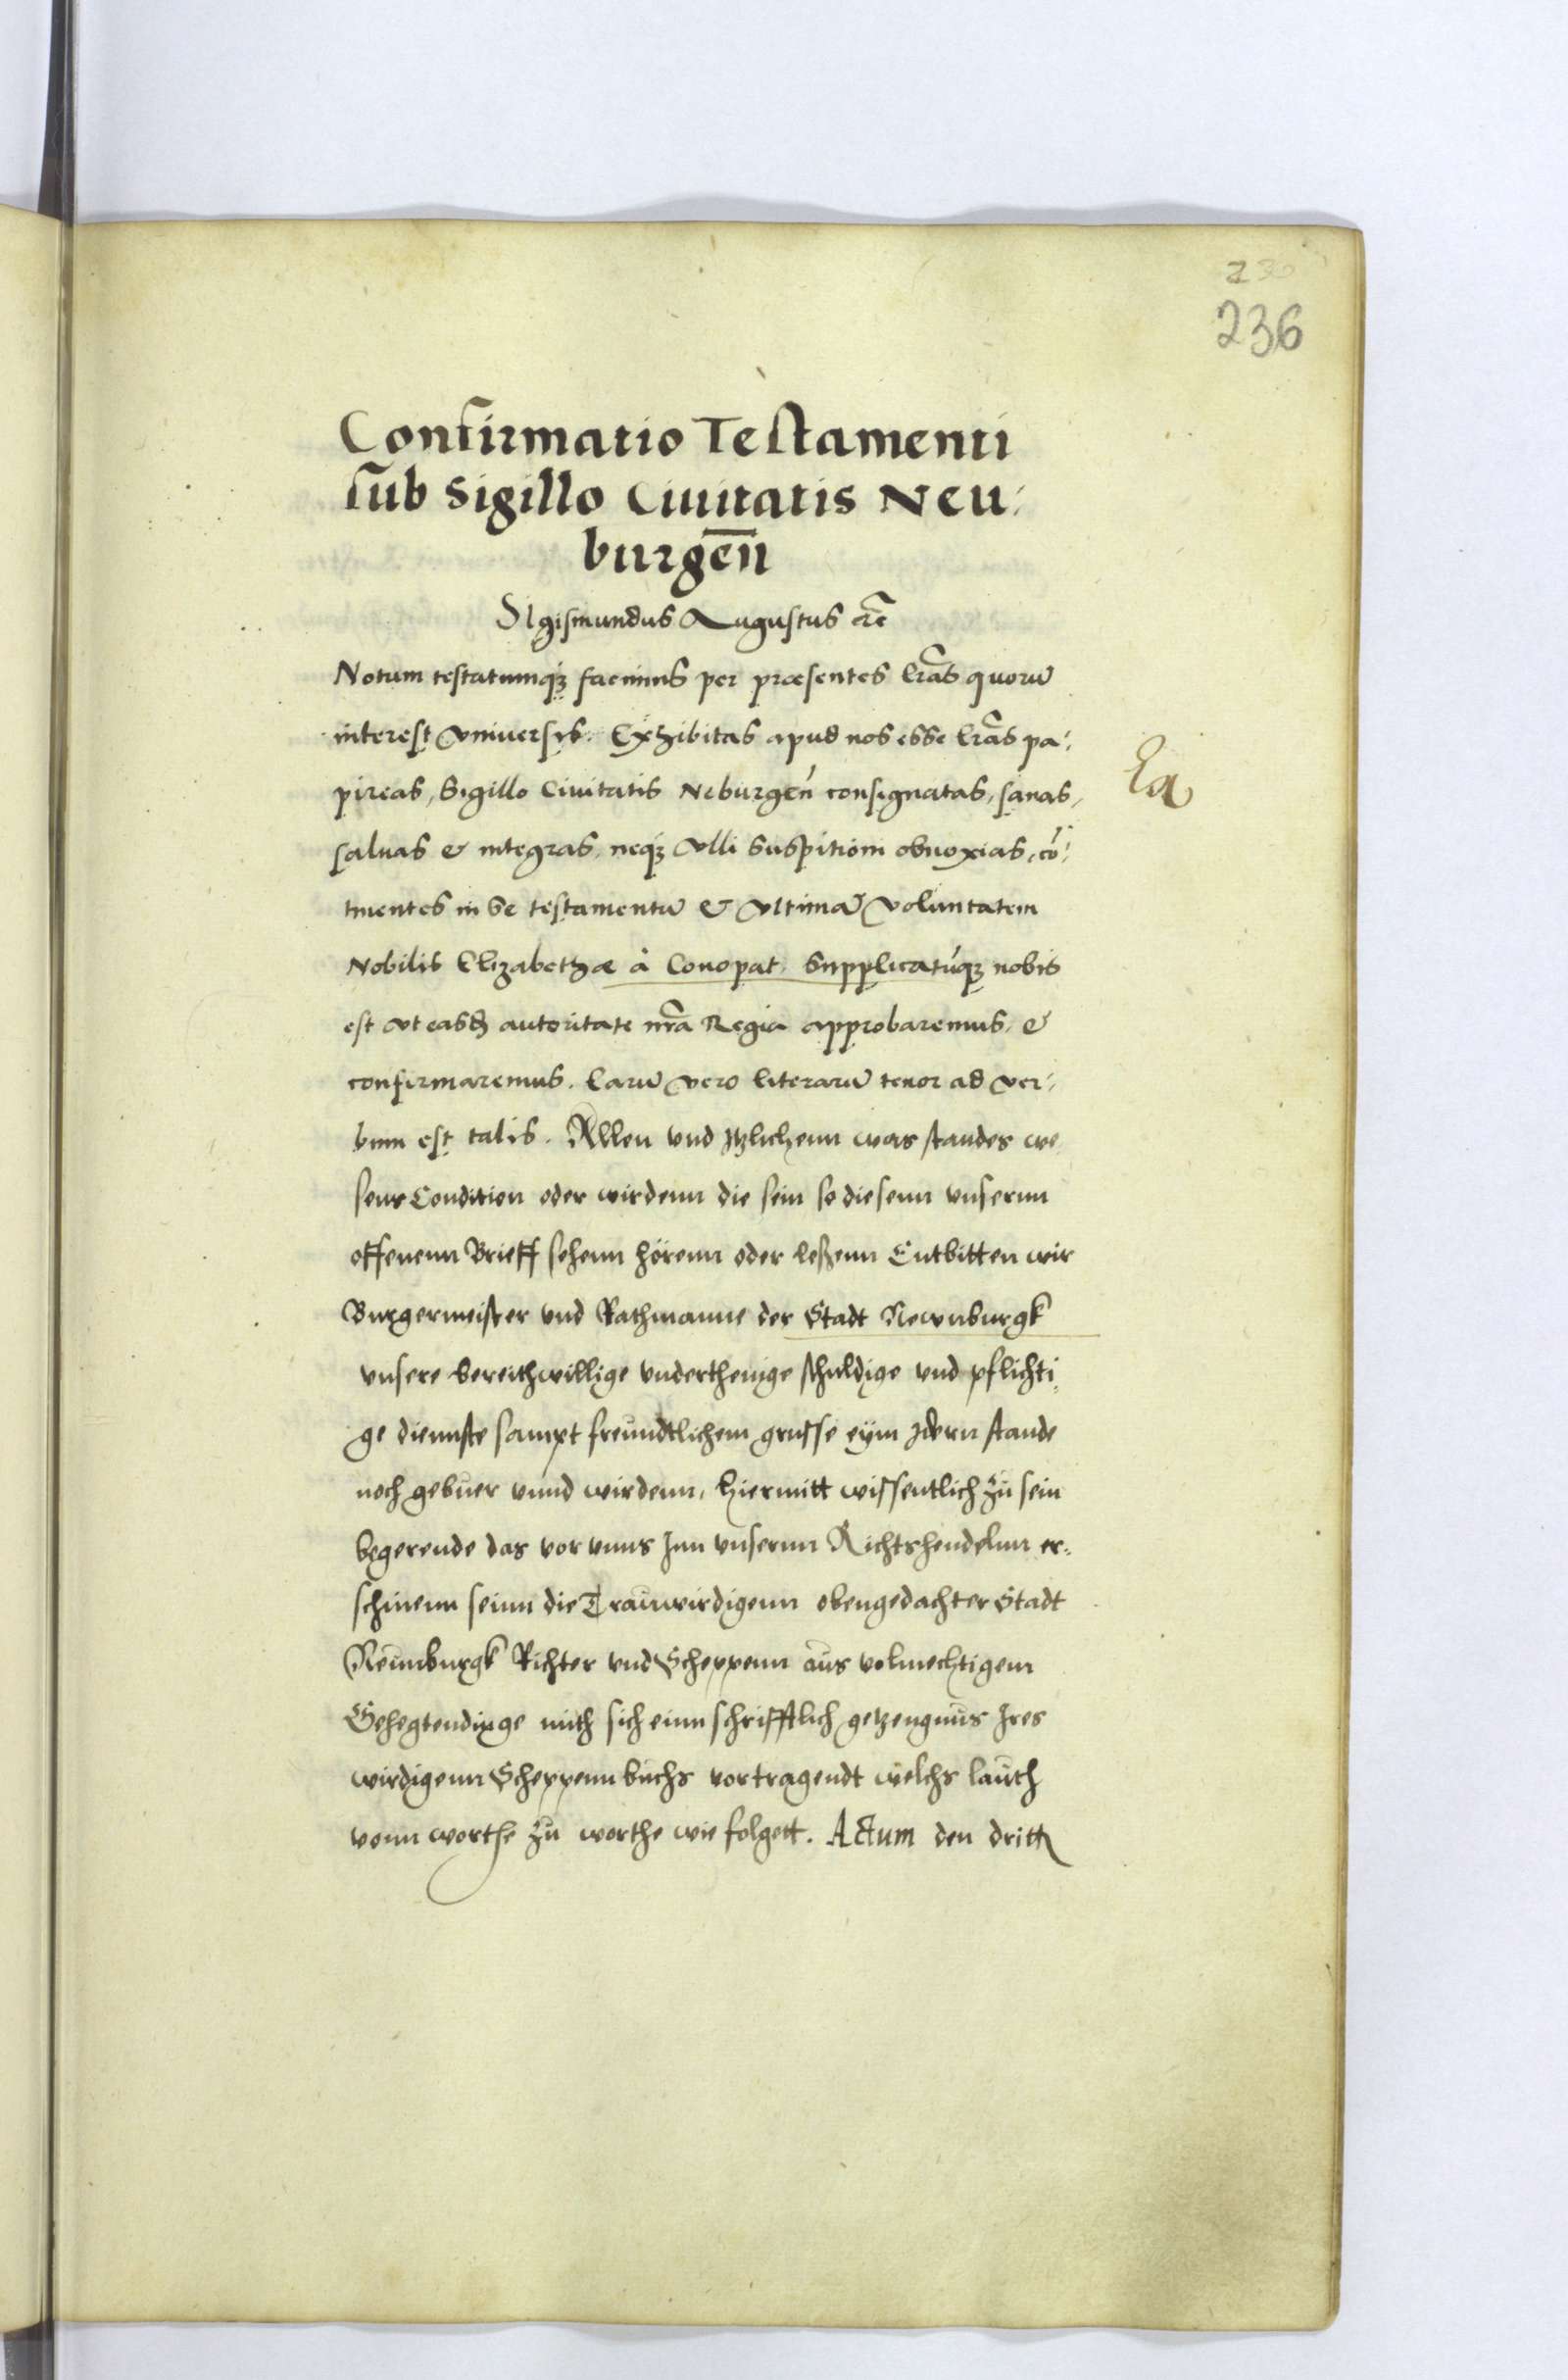 230
236
Confirmatio Testamenti
sub Sigillo Ciuitatis Neu-
burgen̄
Sigismundus Augustus etc̃
Notum testatumq́ꝫ facimus per præsentes l̃ras quorũ
interest vniuersis. Exhibitas apud nos esse l̃ras pa-
pireas, Sigillo Ciuitatis Neburgen̄ consignatas, sanas,
saluas & integras, neqꝫ vlli suspitioni obnoxias, cõ-
tinentes in se testamentũ & vltimã voluntatem
Nobilis Elizabethæ à Conopat. Supplicatũqꝫ nobis
est vt easđ autoritate nr̃a Regia approbaremus, &
confirmaremus. Earũ vero literarũ tenor ad ver-
bum est talis. Allen vnd Itzlichenn was standes we
senns Condition oder wirdenn die sein so diesenn vnsernn
offenenn Brieff sehenn hörenn oder leßenn Entbitten wir
Burgermeister vnd Rathmanne der Stadt Newnburgk
vnsere bereithwillige vnderthenige schuldige vnd pflichti-
ge diennste sampt freundtlichem grusse eÿm Idern stande
noch gebuer vnnd wirdenn, hiermitt wissentlich zu sein
begerende das vor vnns Inn vnsernn Richtshendelnn er-
schinenn seinn die Trauwirdigenn obengedachter Stadt
Neunburgk Richter vnd Scheppenn aus volmechtigem
Gehegtendinge mith sich einn schrifftlich getzengnus Ires
wirdigenn Scheppenn buchs vortragendt welchs lauth
vonn worthe zu worthe wie folgett. Actum den dritten